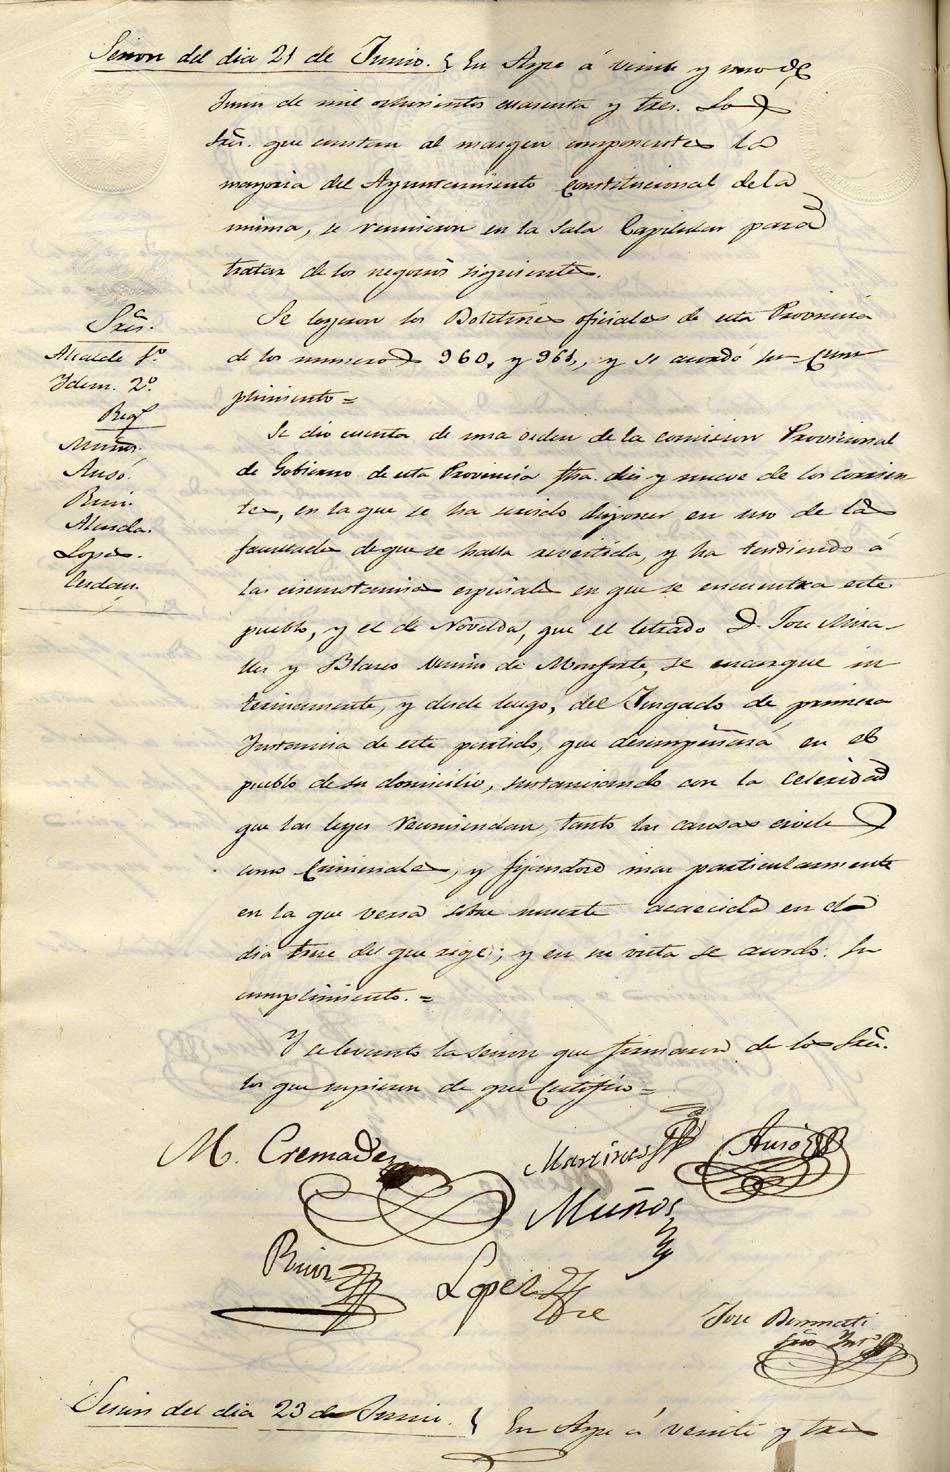 Sesion del dia 21 de Junio. En Aspe á veinte y uno de
Junio de mil ochocientos cuarenta y tres. Los
Sres. que constan al margen componentes la
mayoria del Ayuntamiento Constitucional de la
misma, se reunieron en la Sala Capitular para
tratar de los negocios siguientes.
Sres.
Alcalde 1º
Idem. 2º
Reg.
Muños.
Ausó.
Alenda.
Lopes.
Cerdan.
Se leyeron los Boletines oficiales de esta Provincia
de los numeros 960, y 961, y se acordó su cum
plimiento =
Se dio cuenta de una orden de la comision Provisional
de Gobierno de esta Provincia fha. dies y nueve de los corrien
tes, en la que se ha servido disponer en uso de las
facultades de que se halla revestida, y ha tendiendo á
las circunstancias especiales en que se encuentra este
pueblo, y el de Novelda, que el letrado D. Jose Mira-
lles y Blasco vecino de Monforte, se encargue in
terinamente, y desde luego, del Jusgado de primera
Instancia de este partido, que desempeñará en el
pueblo de su domicilio, sustanciando con la celeridad
que las leyes recomiendan, tanto las causas civiles
como Criminales, y fijandose mas particularmente
en la que versa sobre muerte acaecida en el
dia trece del que rige; y en su vista se acordo: su
cumplimiento. =
Y se levanto la sesion que firmaron de los Sres.
los que supieron de que Certifico =
M. Cremades
Martines
Ausó
Muños
Lopez
Jose
Srio Intº
Sesion del dia 23 de Junio. En Aspe á veinte y tres